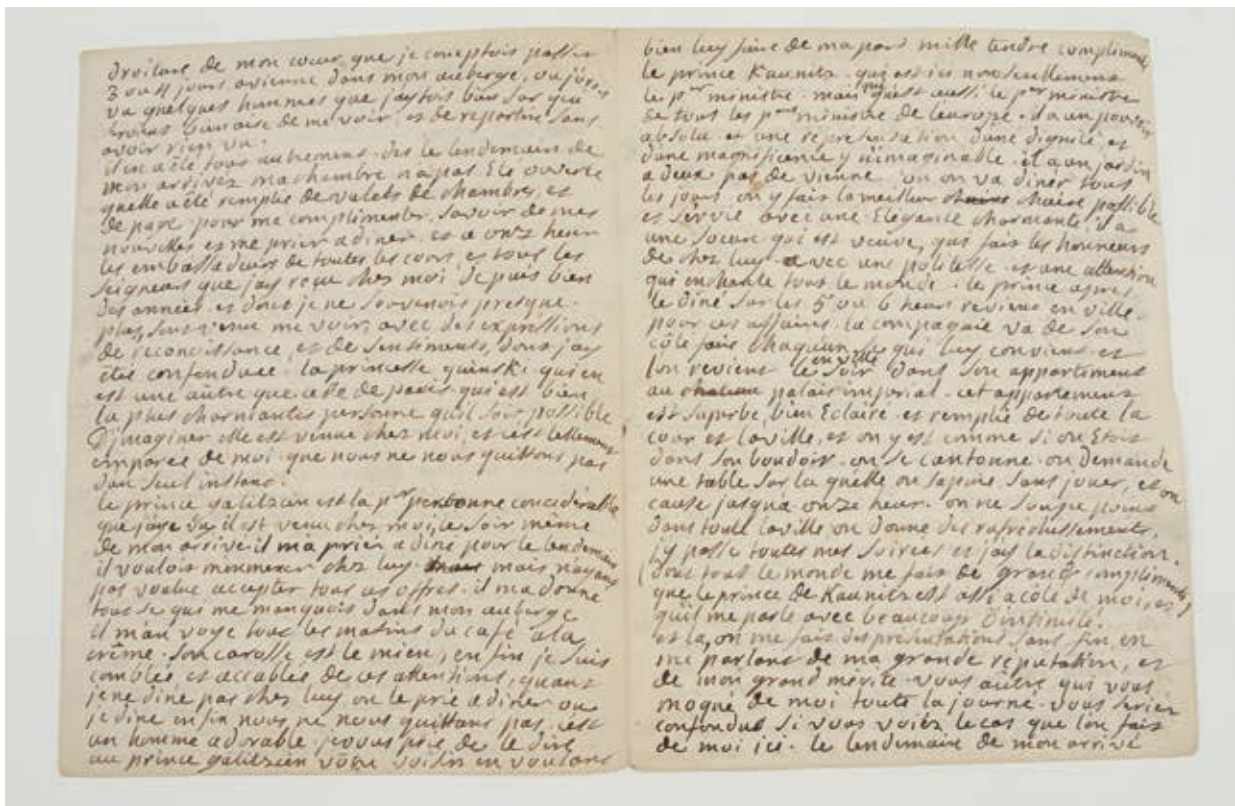 droiture de mon cœur que je comptois passer
3 ou 4 jours a vienne dans mon auberge, ou j'orois
vu quelques hommes que jaytois bien sur qui
seroient bien aise de me voir, et de repartir sans
avoir rien vu.
il en a été tous autrement. des le lendemain de
mon arrivez ma chambre na pas Eté ouverte
quelle a été remplie de valets de chambres, et
de page pour me complimenter, savoir de mes
nouvelles et me prier a diner. et a onze heur
les embassadeurs de toutes les cours, et tous les
seigneurs que jay reçu chez moi depuis bien
des années, et dont je ne souvenois presque
plus, sont venu me voir, avec des expressions
de reconoissance, et de sentiments, dont jay
étés confondüe. la princesse quinski qui en
est une autre que celle de paris qui est bien
la plus charmantes personne quil soit possible
D'imaginer elle est venue chez moi, et s'est tellement
emparée de moi que nous ne nous quittons pas
dun seul instans.
le prince galitzin est la pre personne conciderable
que jaye vu il est venu chez moi, le soir même
de mon arrivé il ma prier a dine pour le lendemain
il vouloit memmener chez luy mais nayant
pas voulue accepter tous ces offres. il ma donne
tous se qui me manquoit dans mon auberge
il m'an voye tous les matins du café a la
crême. son carosse est le mien, en fin je suis
comblés et accablés de ces attentions, quant
je ne dine pas chez luy on le prie a diner ou
je dine en fin nous ne nous quittons pas, c'est
un homme adorable je vous prie de le dire
au prince galitzin vôtre voisin en voulant
bien luy faire de ma part mille tendre compliments
le prince Kaunits qui est ici non seullement
le per ministre mais qui est aussi le per ministre
de tout les pers ministre de leurope. il a un pouvoir
absolu et une représentation d'une dignité, et
dune magnificence y n'imaginable. il a un jardin
a deux pas de vienne ou on va diner tous
les jours, on y fait la meilleur chaire possible
et servie avec une Elégance charmante, il a
une soeure qui est veuve, qui fait les honneurs
de chez luy avec une politesse et une attention
qui enchante tous le monde. le prince apres
le diné sur les 5 ou 6 heurs reviens en ville
pour ces affaires. la compagnie va de son
côté faire chaqun se qui luy conviens et
lon reviens le soir en ville dans son appartement
au palais imperial. cet appartement
est superbe, bien Eclairé et remplie de toute la
cour et la ville, et on y est comme si on Etoit
dans son boudoir. on se cantonne. on demande
une table sur la quelle on sapuie sans jouer, et on
cause jusqua onze heur. on ne soupe point
dans toute la ville on donne des rafrechissements,
j'y passe toutes mes soirées et jay la distinction
(dont tout le monde me fait de grants compliments)
que le prince de Kaunits est assi a côté de moi, et
qu'il me parle avec beaucoup d'intimité.
et la, on me fait des presentations sans fin, en
me parlant de ma grande réputation, et
de mon grand mérite. vous autre qui vous
moqué de moi toute la journé. vous seriez
confondus si vous voiés le cas que lon fait
de moi ici. le lendemain de mon arrivé